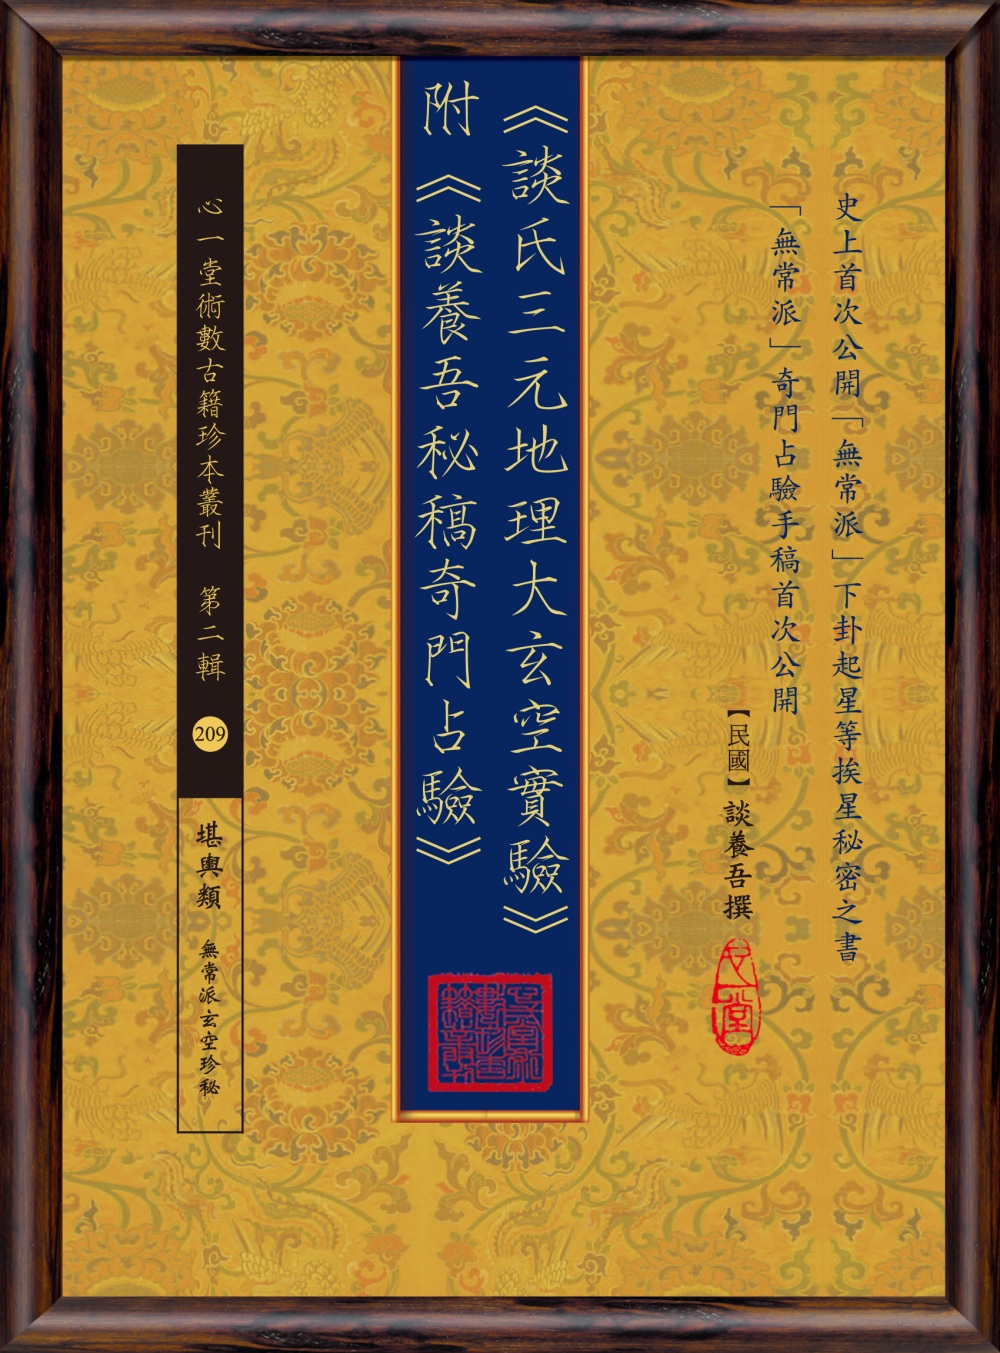 史上首次公開「無常派」下卦起星等挨星秘密之書
「無常派」奇門占驗手稿首次公開
【民國】談養吾撰
《談氏三元地理大玄空實驗》
附《談養吾秘稿奇門占驗》
心一堂術數古籍珍本叢刊 第二輯 209
堪輿類 無常派玄空珍秘